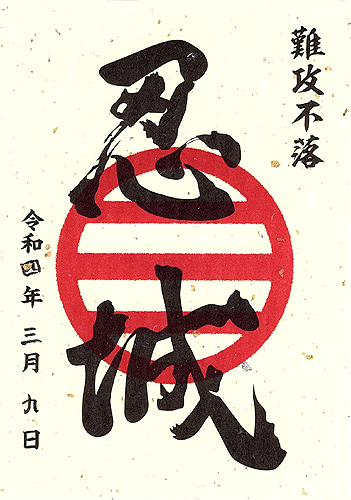 難攻不落
忍城
令和四年三月九日